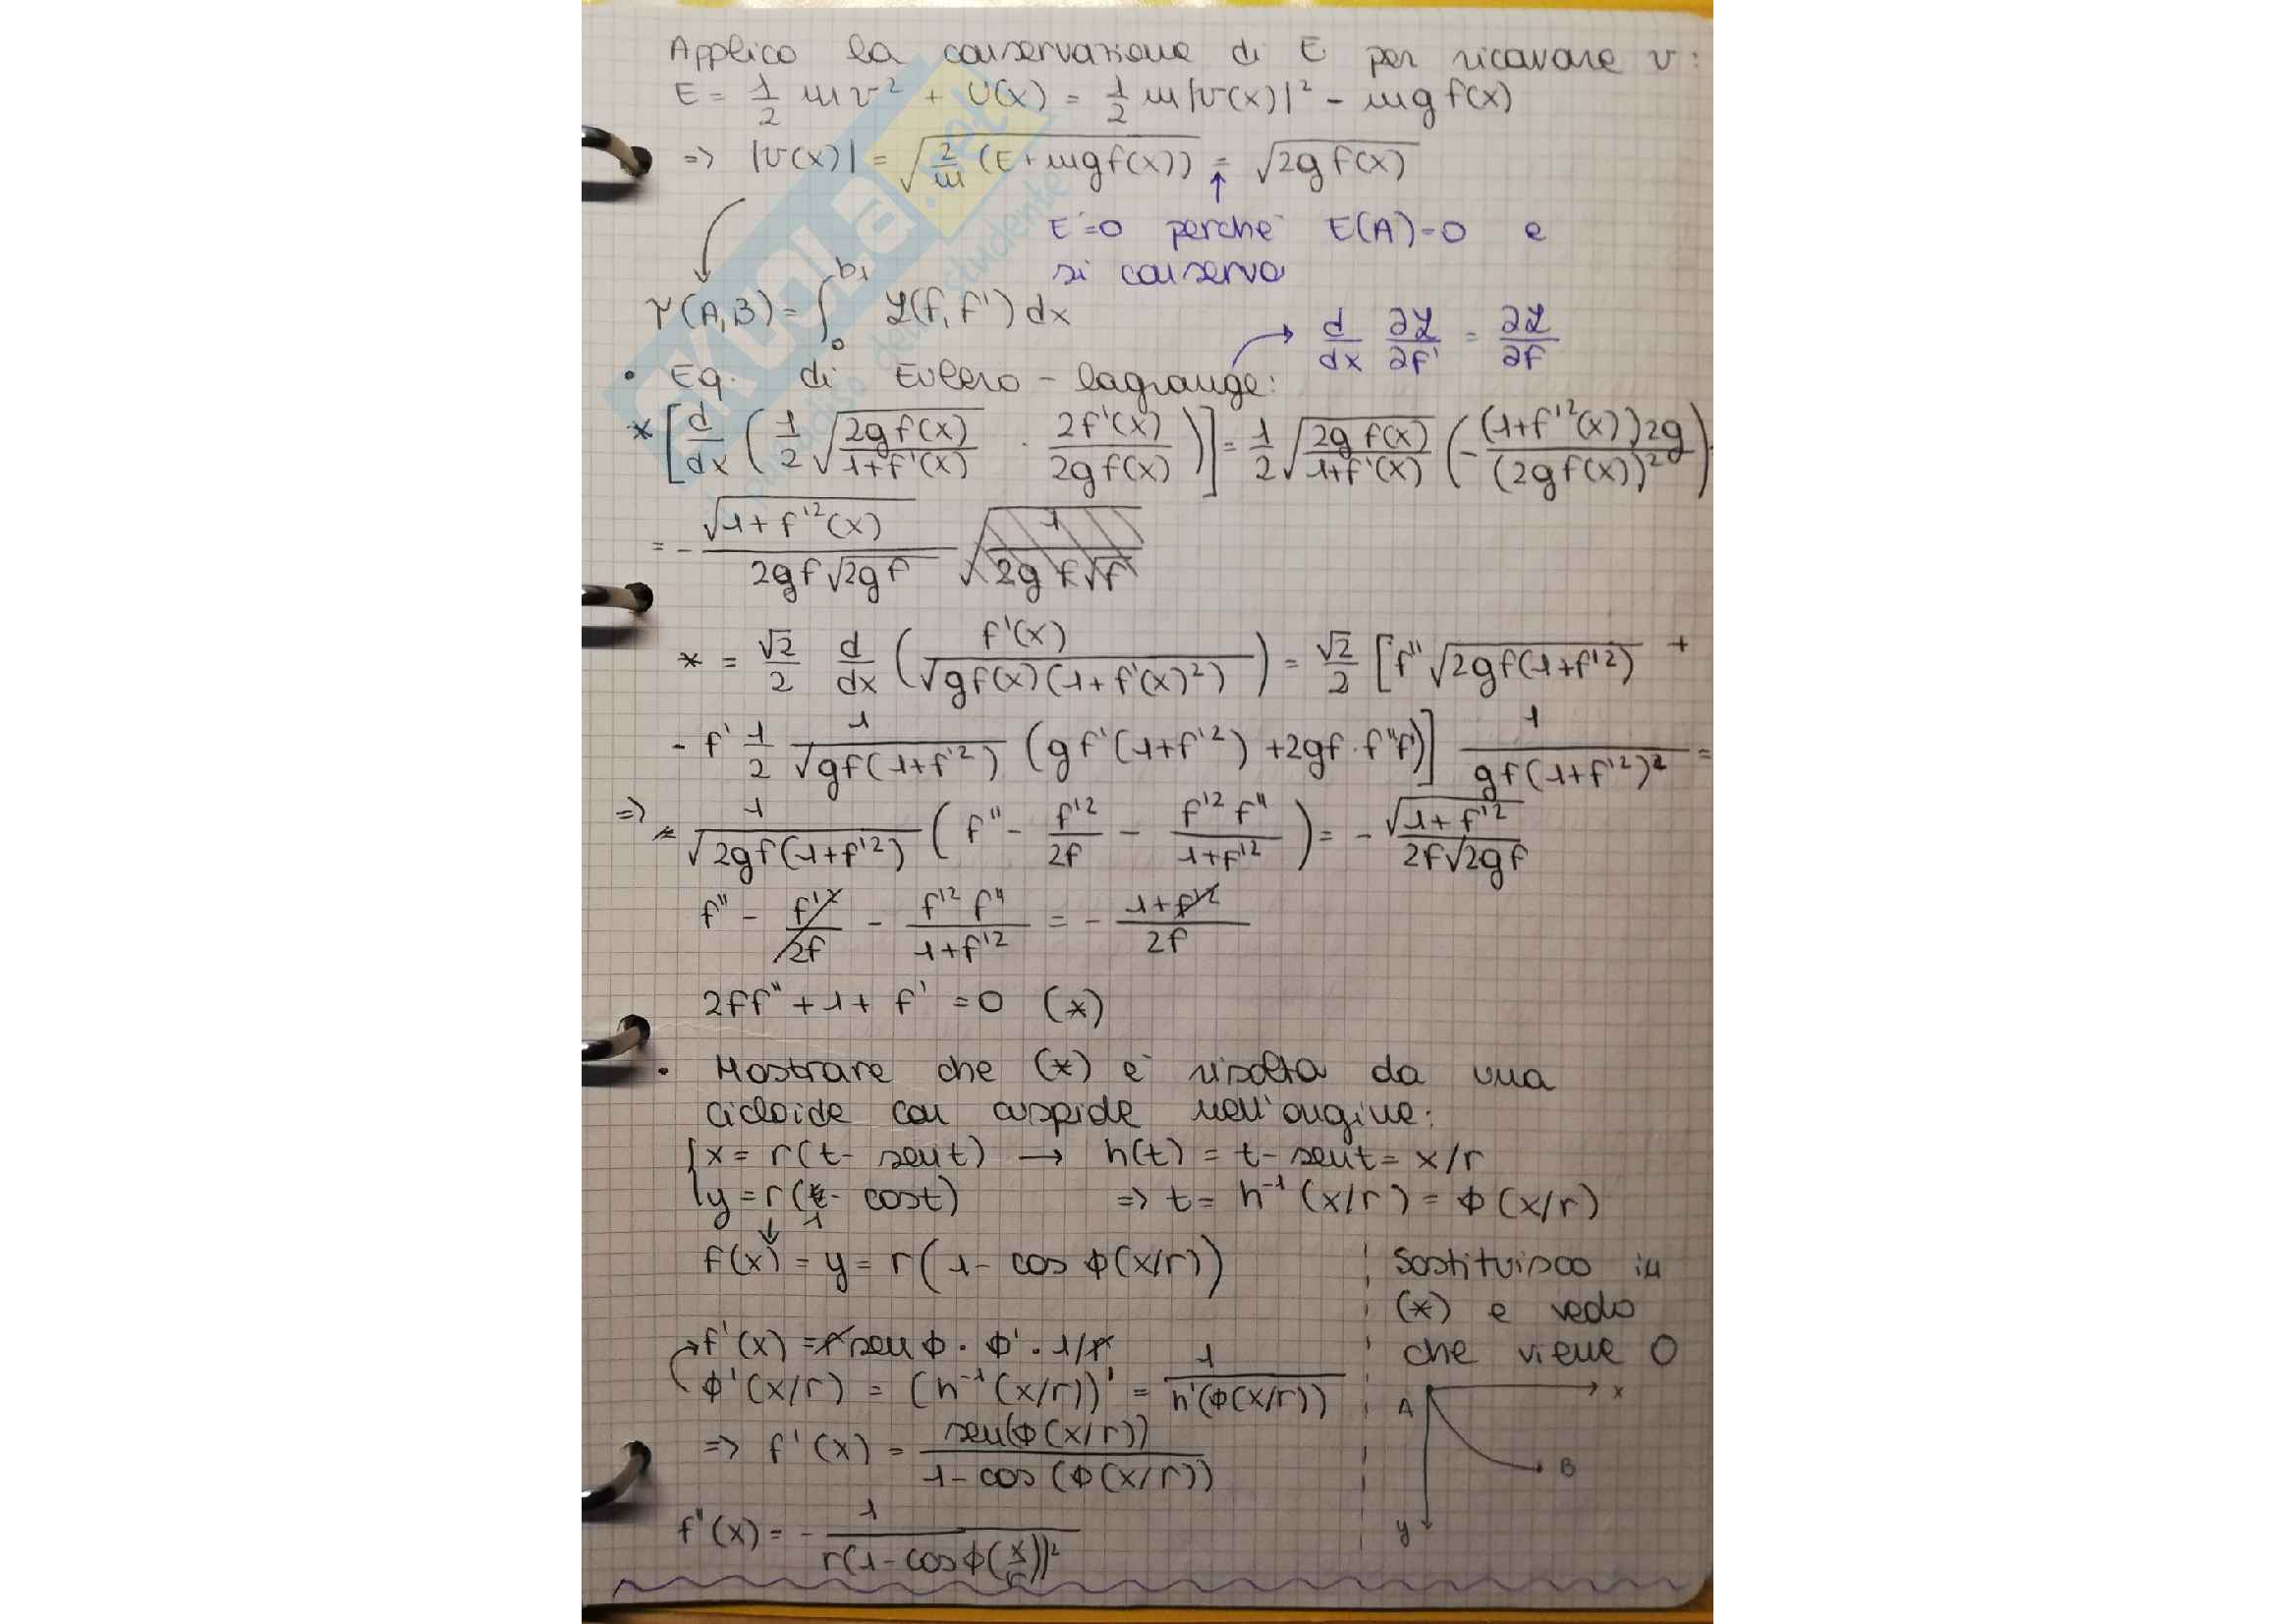 Applico la conservazione di E per ricavare v:
E = 1/2 m v² + U(x) = 1/2 m |v(x)|² - mg f(x)
=> |v(x)| = √(2/m (E + mg f(x))) = √(2g f(x))
E=0 perché E(A)=0 e
si conserva
τ(A,B) = ∫₀^b₁ ℒ(f, f') dx
• Eq. di Eulero-Lagrange: → d/dx ∂ℒ/∂f' = ∂ℒ/∂f
* [d/dx (1/2 √(2g f(x) / 1+f'(x)) · 2f'(x) / 2g f(x))] = 1/2 √(2g f(x) / 1+f'(x)) (- (1+f'²(x)) 2g / (2g f(x))²) ·
= - √(1+f'²(x)) / 2gf√2gf
* = √2/2 d/dx (f'(x) / √(gf(x)(1+f'(x)²))) = √2/2 [f'' √(2gf(1+f'²)) +
- f' 1/2 1/√(gf(1+f'²)) (gf'(1+f'²) + 2gf · f''f')] 1/gf(1+f'²)² =
=> 1/√(2gf(1+f'²)) (f'' - f'²/2f - f'² f''/1+f'²) = - √(1+f'²) / 2f√2gf
f'' - f'²/2f - f'² f''/1+f'² = - 1+f'²/2f
2ff'' + 1 + f' = 0 (*)
• Mostrare che (*) è risolta da una
cicloide con cuspide nell'origine:
{x = r(t - sent) → h(t) = t - sent = x/r
{y = r(1 - cost) => t = h⁻¹(x/r) = ϕ(x/r)
f(x) = y = r(1 - cos ϕ(x/r))
Sostituisco in
(*) e vedo
che viene 0
f'(x) = r sen ϕ · ϕ' · 1/r
ϕ'(x/r) = (h⁻¹(x/r))' = 1/h'(ϕ(x/r))
=> f'(x) = sen(ϕ(x/r)) / 1 - cos(ϕ(x/r))
f''(x) = - 1 / r(1 - cosϕ(x/r))²
A x
B
y
SKUOLA.net